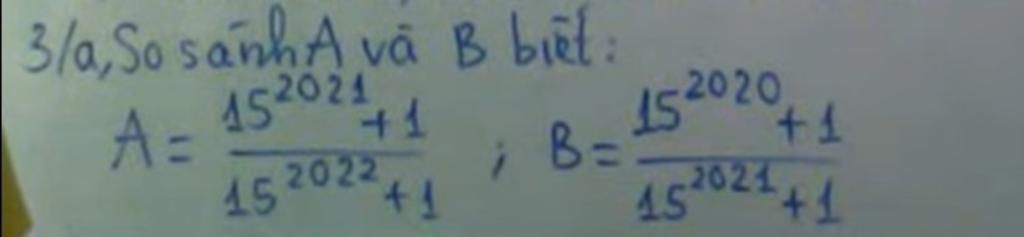 3/a, So sánh A và B biết:
A = \frac{15^{2021}+1}{15^{2022}+1} ; B = \frac{15^{2020}+1}{15^{2021}+1}